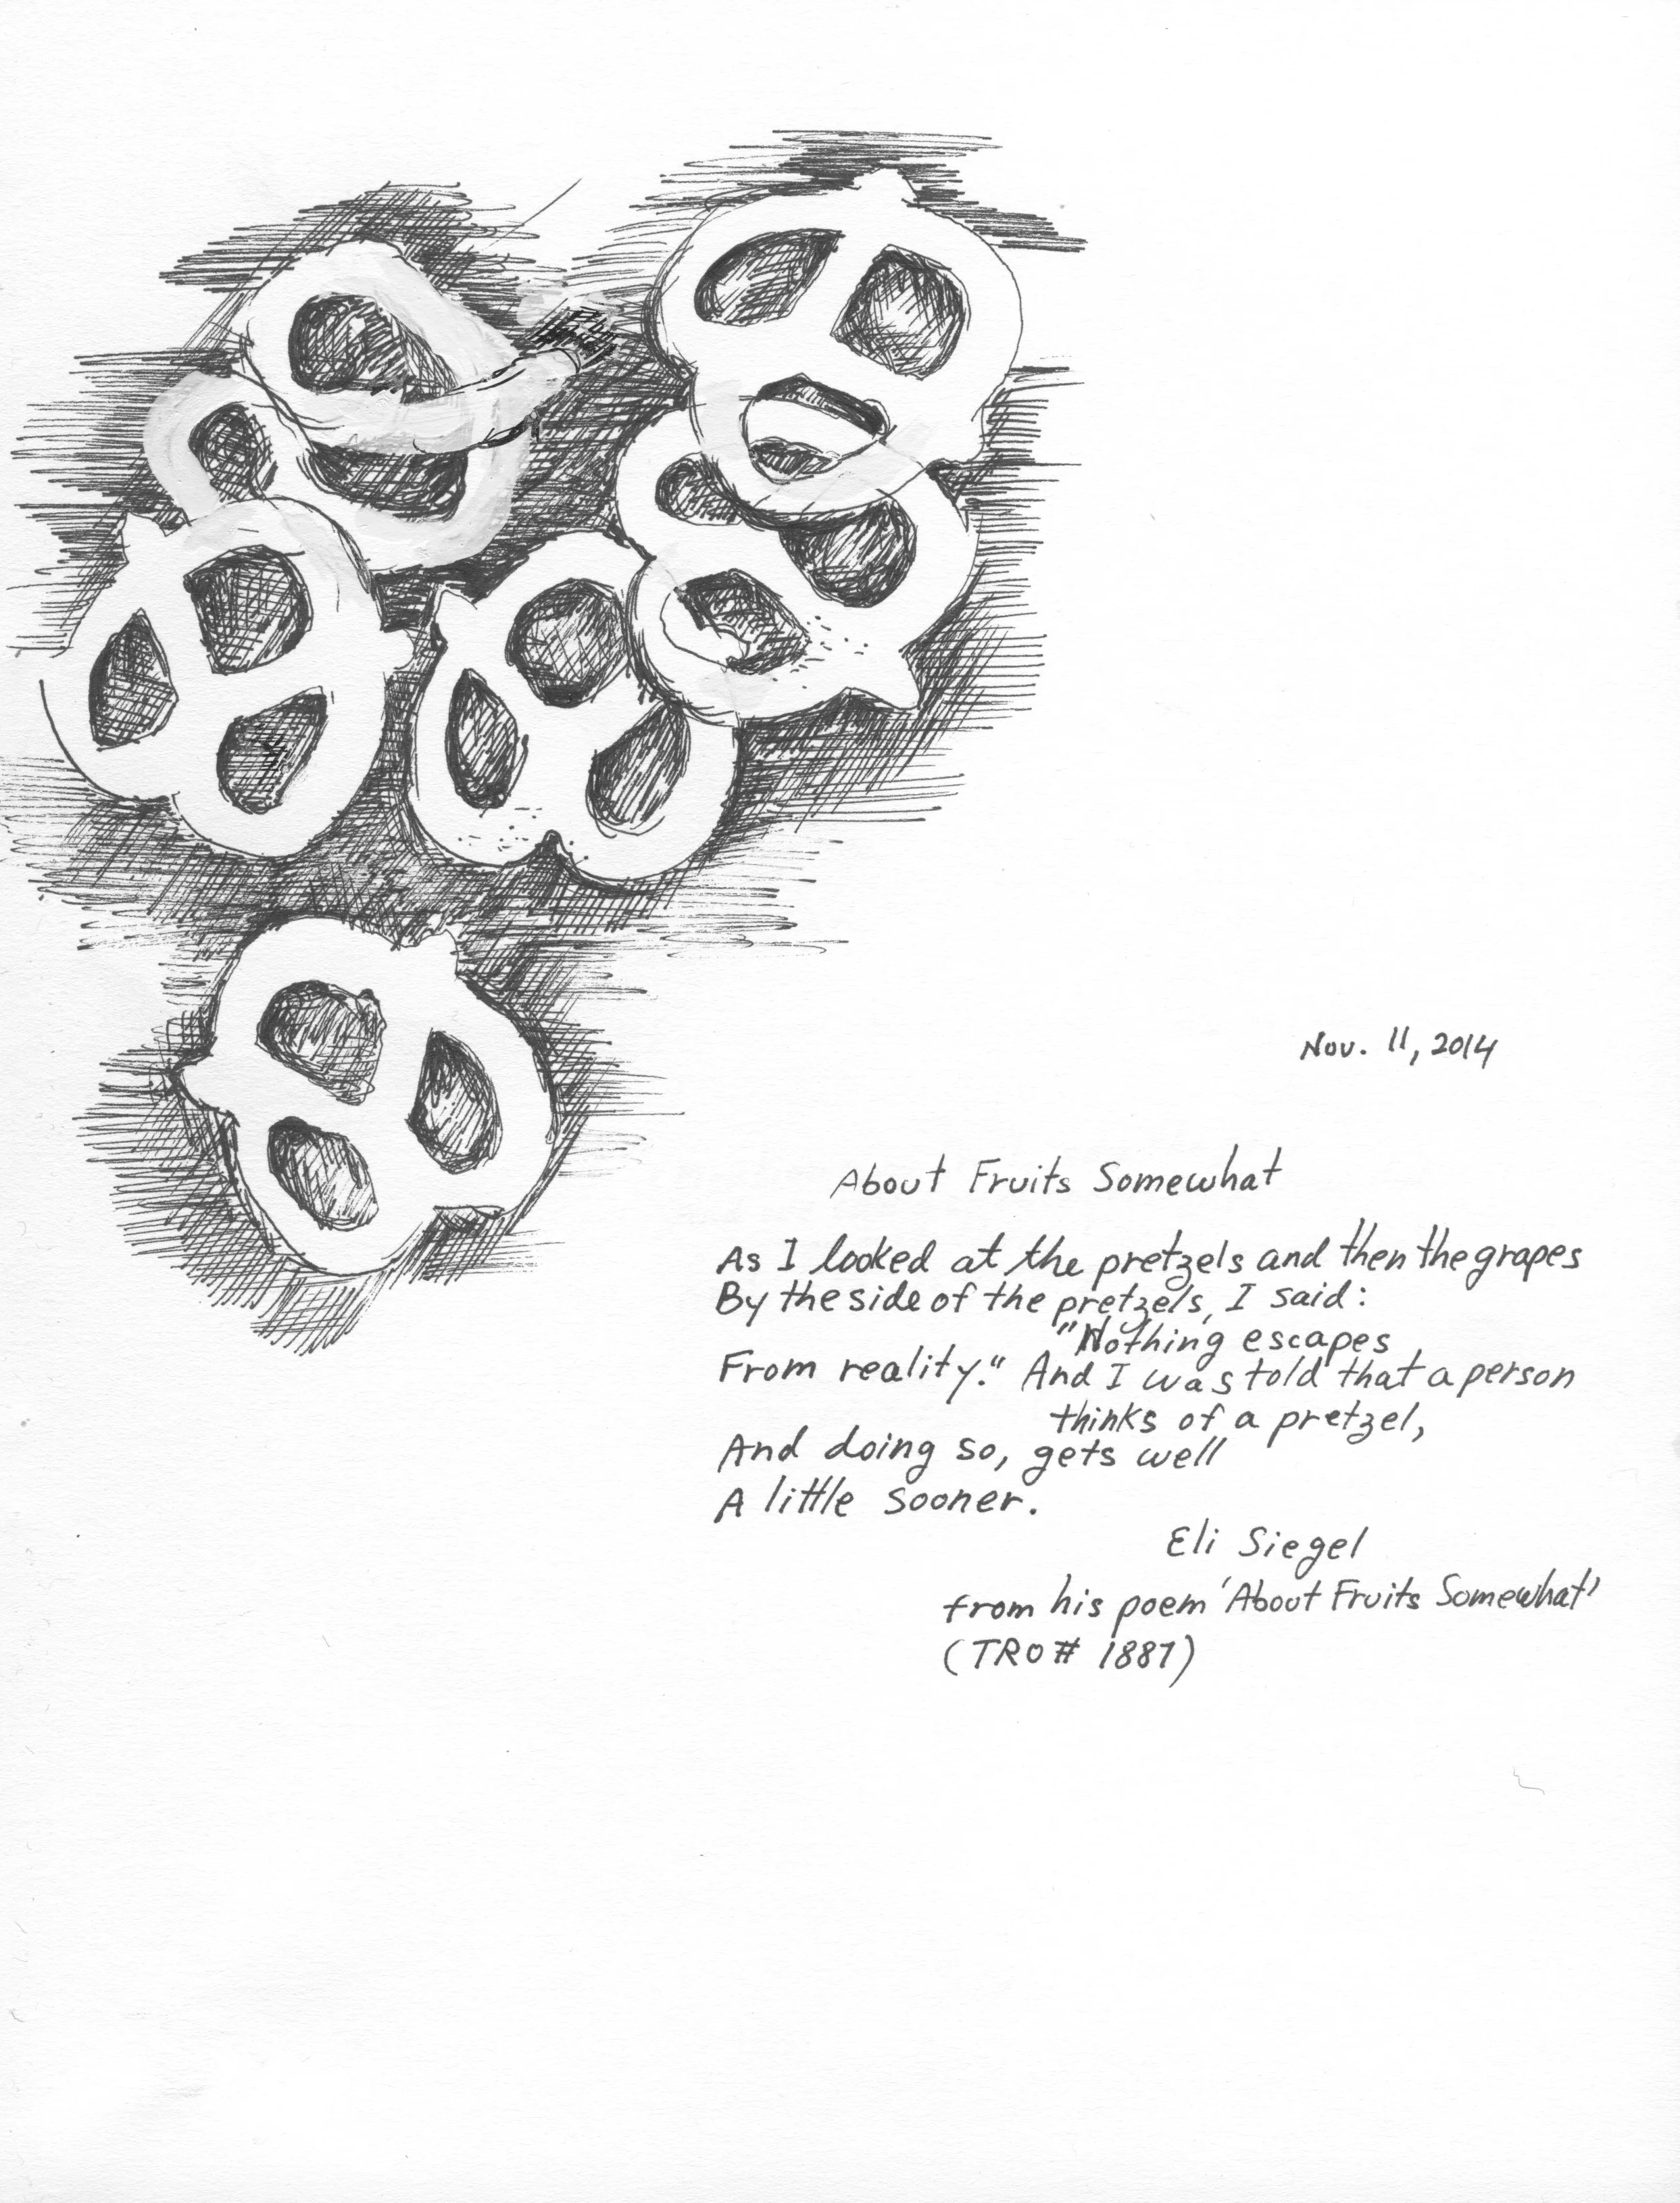 Nov. 11, 2014
About Fruits Somewhat
As I looked at the pretzels and then the grapes
By the side of the pretzels, I said:
"Nothing escapes
From reality." And I was told that a person
thinks of a pretzel,
And doing so, gets well
A little sooner.
Eli Siegel
from his poem 'About Fruits Somewhat'
(TRO# 1887)